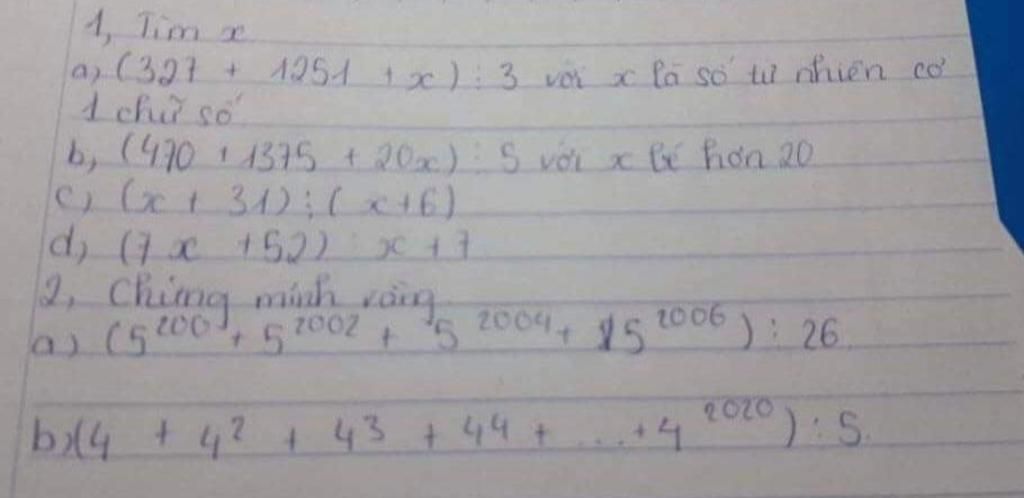 1, Tìm x
a, (327 + 1251 + x) ⋮ 3 với x là số tự nhiên có
1 chữ số
b, (470 + 1375 + 20x) ⋮ 5 với x bé hơn 20
c, (x + 31) ⋮ (x+6)
d, (7x +52) ⋮ x+7
2, Chứng minh rằng
a) (5²⁰⁰ + 5²⁰⁰² + 5²⁰⁰⁴ + 5²⁰⁰⁶) ⋮ 26
b) (4 + 4² + 4³ + 4⁴ + ... +4²⁰²⁰) ⋮ 5.